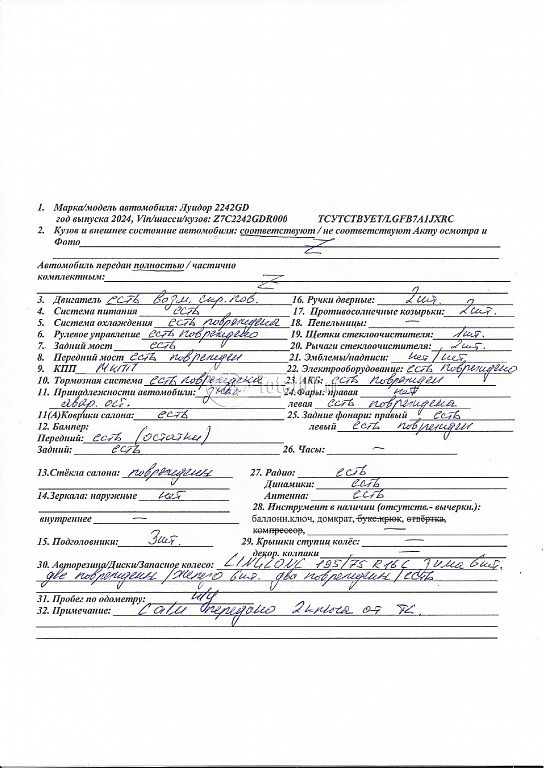 1. Марка/модель автомобиля: Луидор 2242GD
год выпуска 2024, Vin/шасси/кузов: Z7C2242GDR000 ТСУТСТВУЕТ/LGFB7A1JXRC
2. Кузов и внешнее состояние автомобиля: соответствуют / не соответствуют Акту осмотра и
Фото Z
Автомобиль передан полностью / частично
комплектным: Z
3. Двигатель есть возм. скр. пов. 16. Ручки дверные: 2шт.
4. Система питания есть 17. Противосолнечные козырьки: 2шт.
5. Система охлаждения есть повреждена 18. Пепельницы: —
6. Рулевое управление есть повреждено 19. Щетки стеклоочистителя: 1шт.
7. Задний мост есть 20. Рычаги стеклоочистителя: 2шт.
8. Передний мост есть поврежден 21. Эмблемы/надписи: нет/нет
9. КПП МКПП 22. Электрооборудование: есть повреждено
10. Тормозная система есть повреждена 23. АКБ: есть поврежден
11. Принадлежности автомобиля: 24.Фары: правая нет
авар. ост. левая есть повреждена
11(А)Коврики салона: есть 25. Задние фонари: правый есть
12. Бампер: левый есть поврежден
Передний: есть (остатки)
Задний: есть 26. Часы: —
13.Стёкла салона: повреждены 27. Радио: есть
Динамики: есть
14.Зеркала: наружные нет Антенна: есть
28. Инструмент в наличии (отсутств.- вычеркн.):
внутреннее — баллонн.ключ, домкрат, букс.крюк, отвёртка,
компрессор, —
15. Подголовники: 3шт. 29. Крышки ступиц колёс: —
декор. колпаки —
30. Авторезина/Диски/Запасное колесо: LINGLONG 195/75 R16C Зима 6шт.
две повреждены /железо 6шт. два повреждены /есть
31. Пробег по одометру: н/у
32. Примечание: передано 2 ключа от ТС.